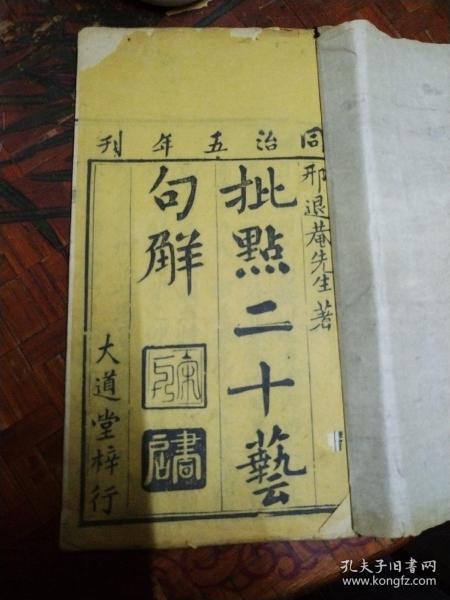 同治五年刊
邢退菴先生著
批點二十藝
句解
大道堂梓行
孔夫子旧书网
www.kongfz.com